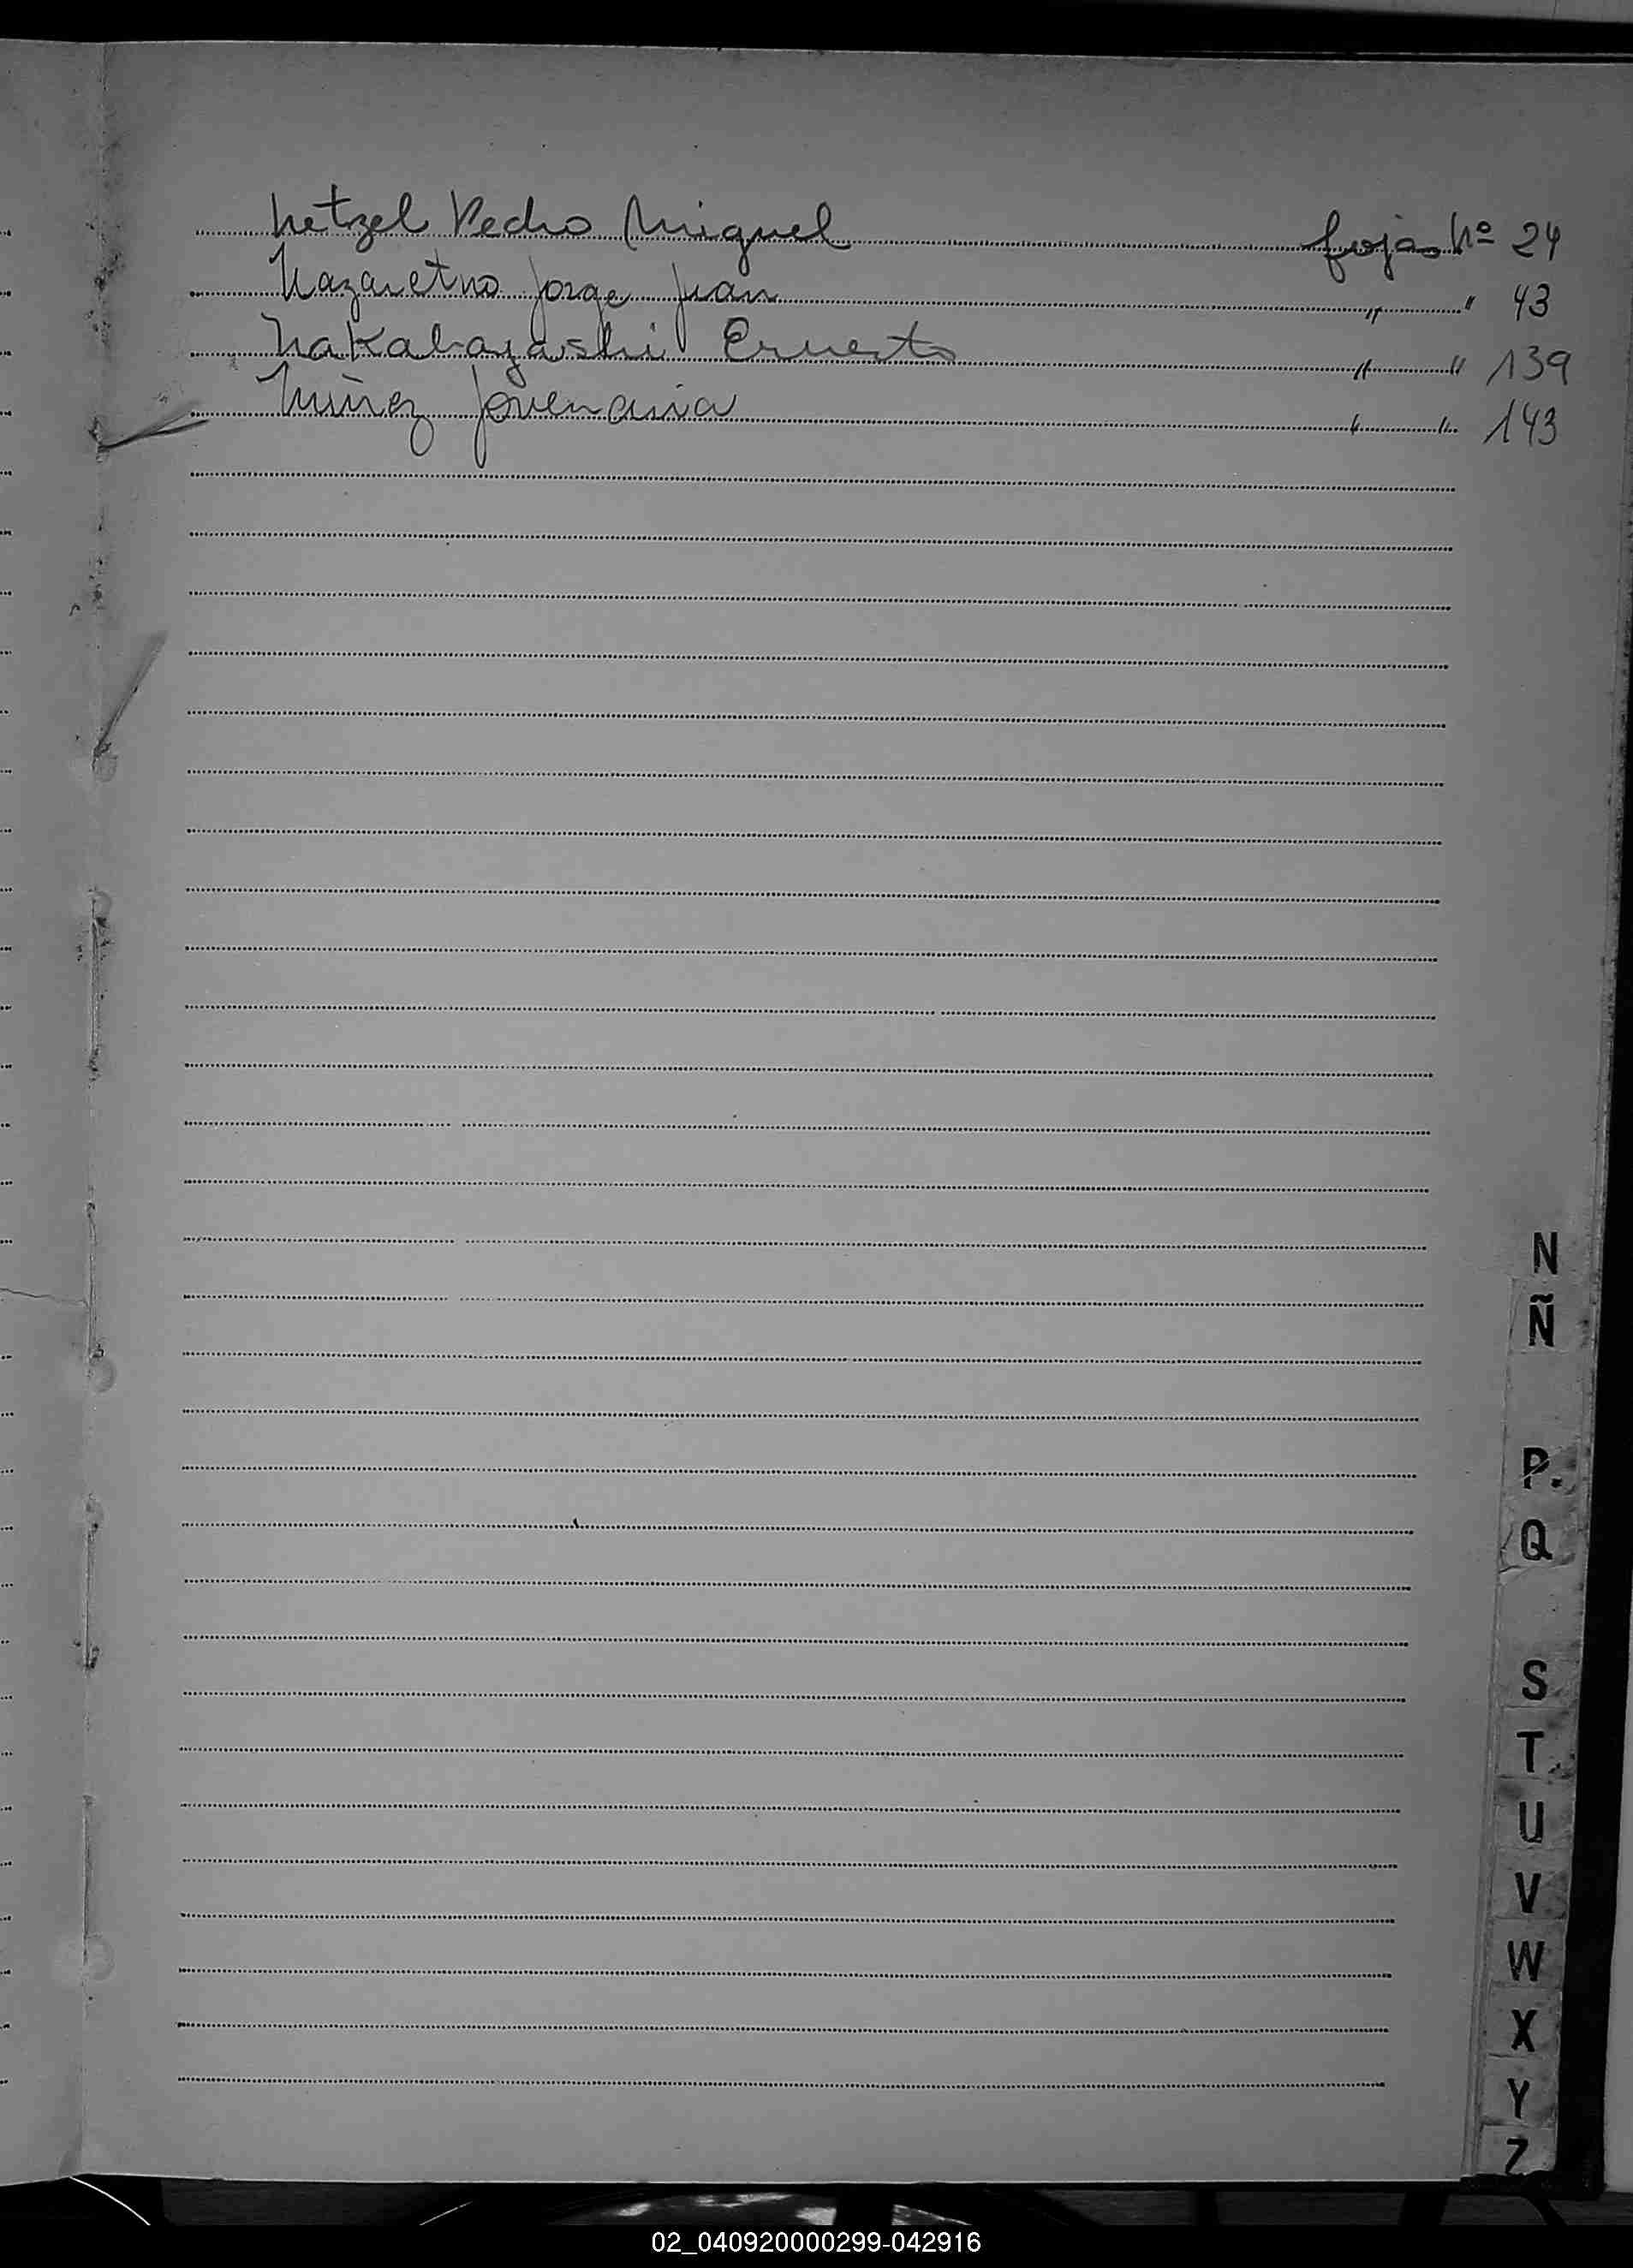 Netzel Pedro Miguel fojas Nº 24
Nazaretno Jorge Juan " " 43
Nakabayashi Ernesto " " 139
Núñez Jovenania " " 143
N
Ñ
P.
Q
S
T
U
V
W
X
Y
Z
02_040920000299-042916